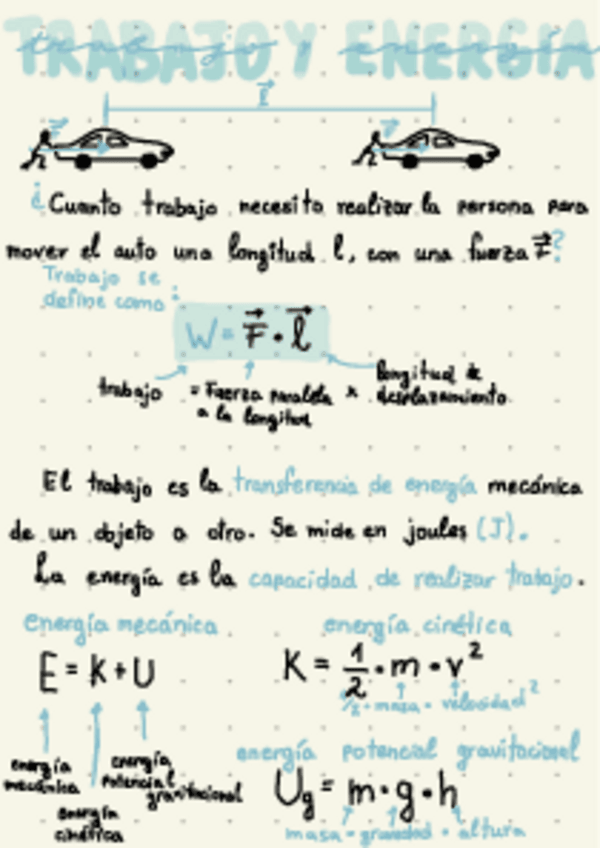 TRABAJO Y ENERGÍA
trabajo y energía
l
F F
¿Cuanto trabajo necesita realizar la persona para
mover el auto una longitud l, con una fuerza F?
Trabajo se
define como:
W = F · l
trabajo = Fuerza paralela a la longitud x longitud de desplazamiento
El trabajo es la transferencia de energía mecánica
de un objeto a otro. Se mide en joules (J).
La energía es la capacidad de realizar trabajo.
energía mecánica
E = K + U
energía mecánica
energía cinética
energía potencial gravitacional
energía cinética
K = 1/2 · m · v²
1/2 · masa · velocidad²
energía potencial gravitacional
Ug = m · g · h
masa · gravedad · altura